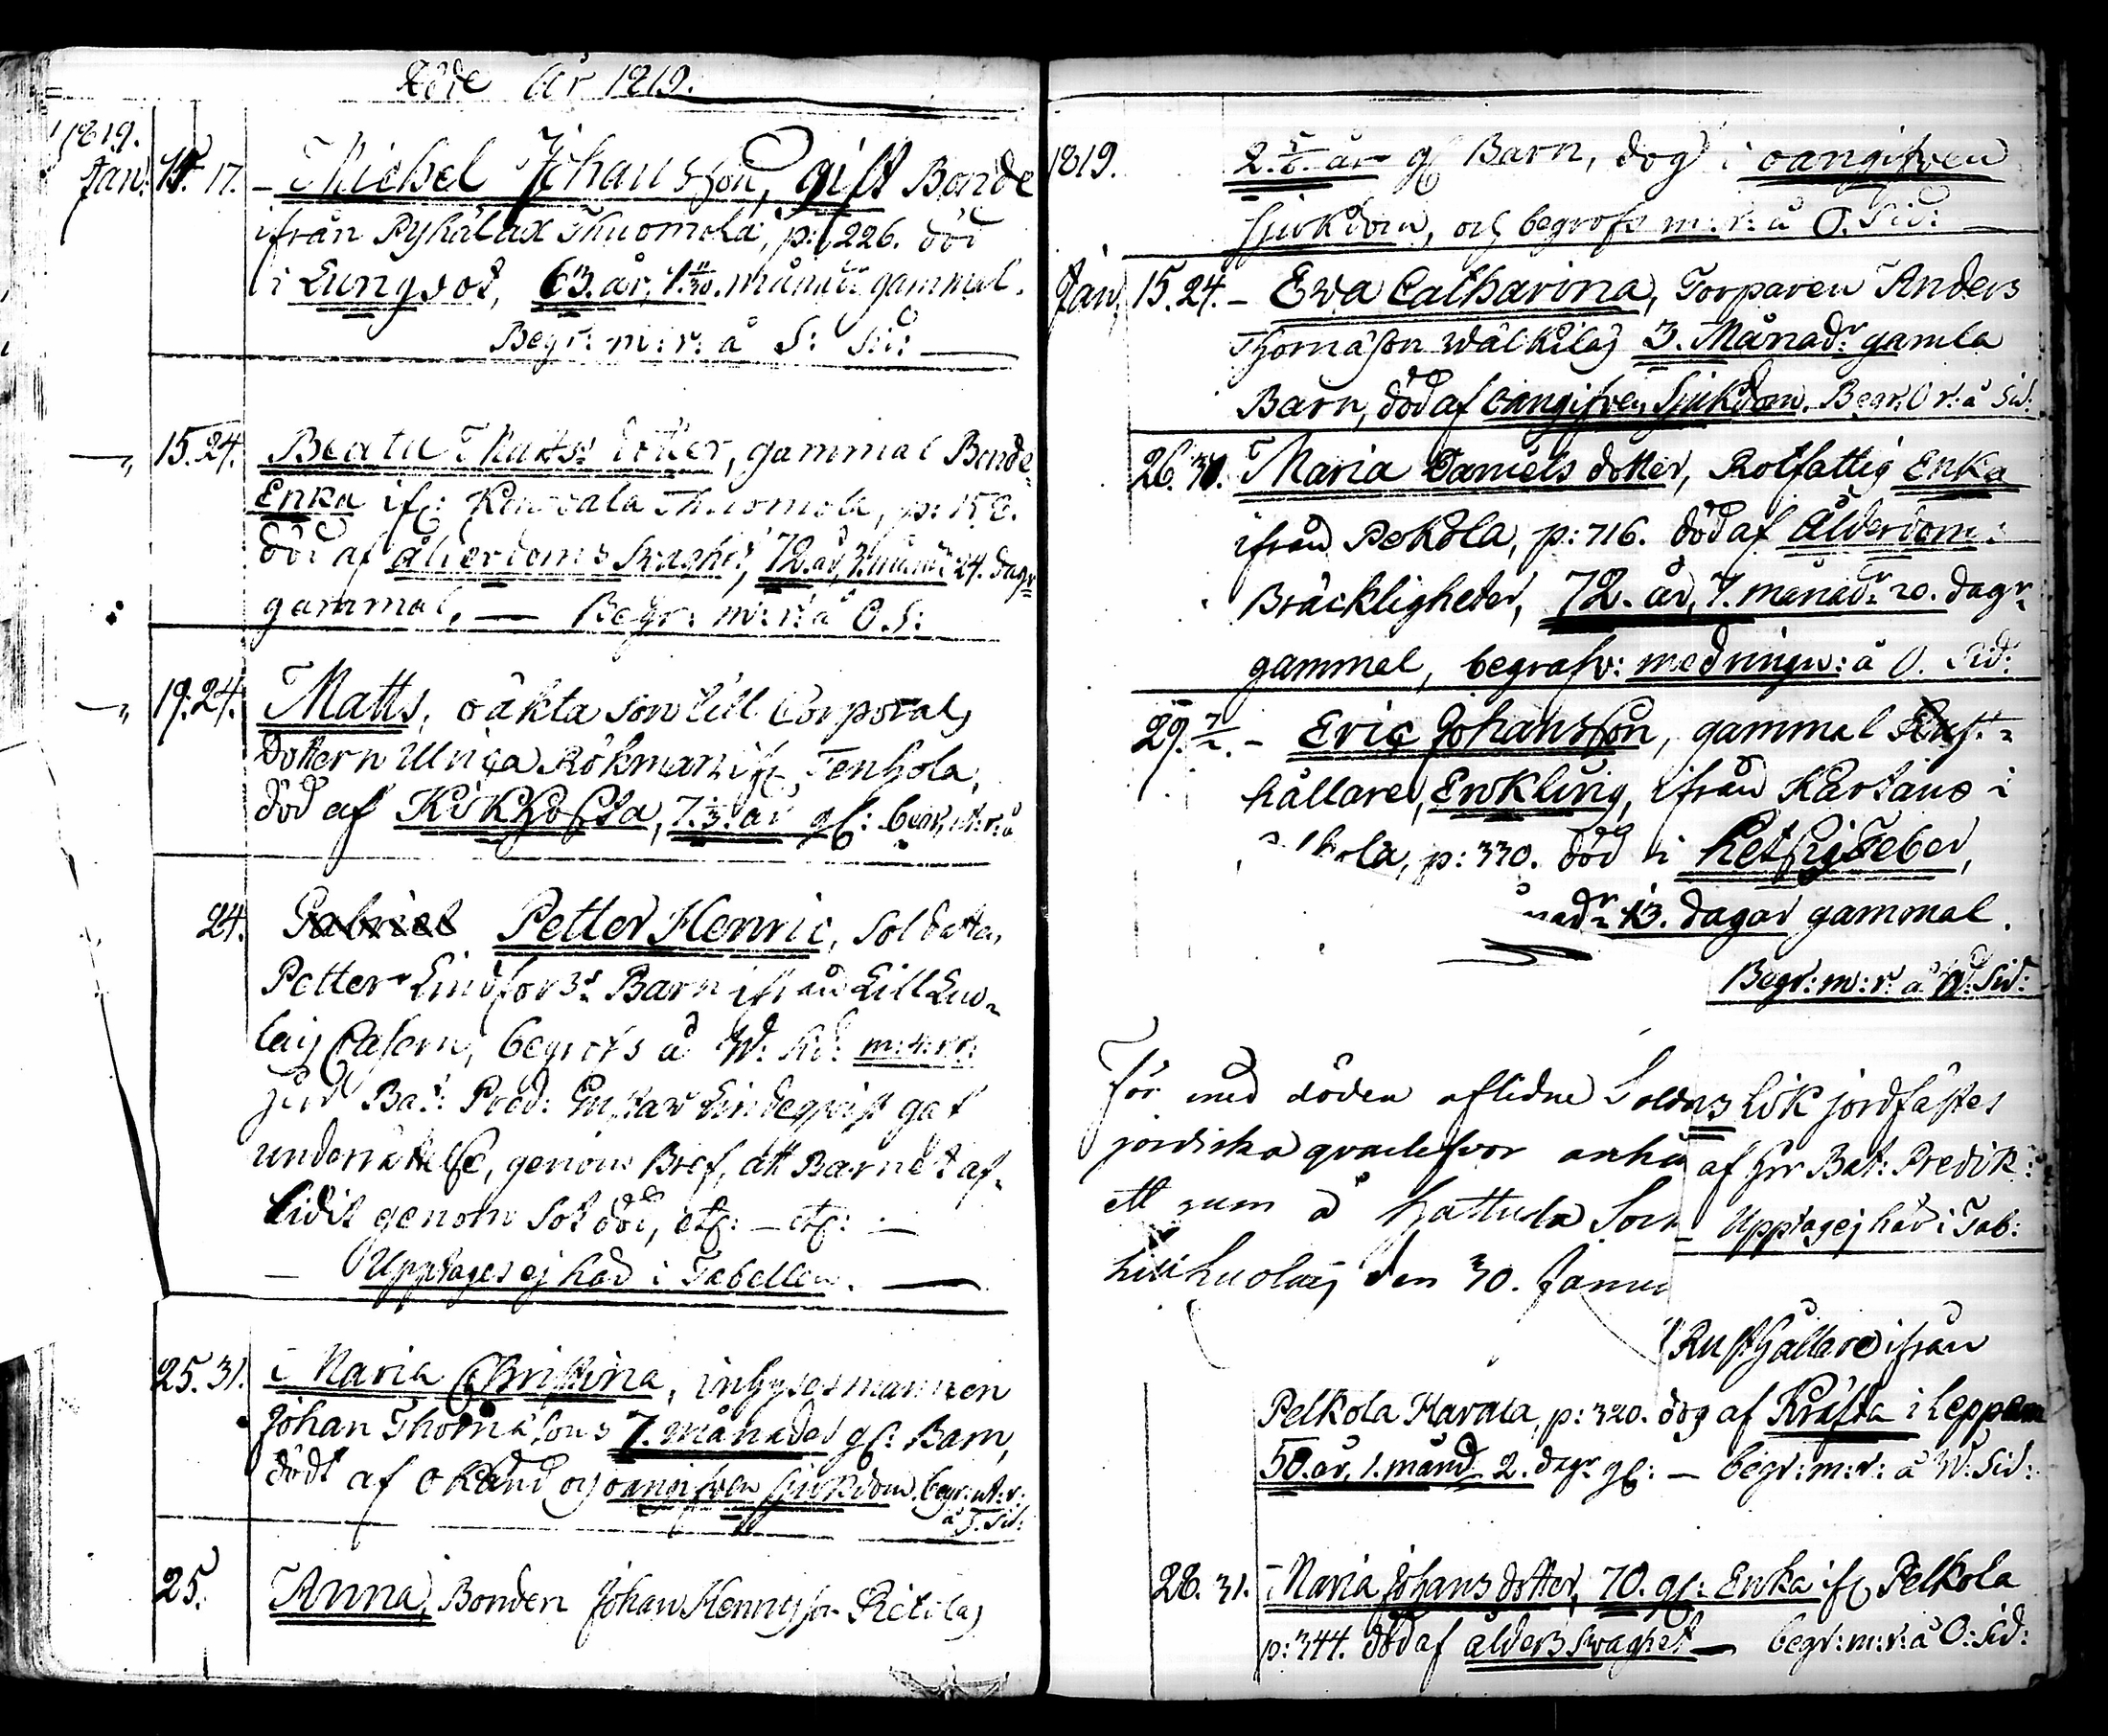 Döde År 1819.
1819.
Jan: 15. 17. – Michel Johansson, gift Bonde
ifrån Pyhälax Thuomola, p: 226. död
i Lungsot, 63. år, månader gammal.
Begr: m: r: å S: Sid:
15. 24. Beata Matts: dotter, gammal Bonde
Enka if: Thuomola, p: 158.
död af ålderdoms svaghet, 72. år, 3. månr 24. dagr
gammal, — Begr: m: r: å O. S:
19. 24. Matts, oäkta son till Corporals
dottern Ulrica Rökman if: Tenhola,
död af Kikhosta, år gl: begr. m: r: å
24. Gabriel Petter Henric, Soldaten
Petter Lindfors: Barn ifrån Lill Luo-
lais Casern, begrofs å W: Sid: m: r:
Bat: Pred: Gustav Lindeqvist gaf
underrättelse, genom Bref, att Barnet af-
lidit genom Sot död, etc: – etc: –
– Upptages ej här i Tabellen. —
25. 31. Maria Christina, inhysesmannen
Johan Thomasons 7. månader gl: Barn,
dödt af okänd och oangifven sjukdom. begr: m: r:
å S. Sid:
25. Anna, Bonden Johan Henricsson
1819. år gl Barn, dog i oangifven
sjukdom, och begrofs m: r: å O. Sid:
Jan. 15. 24. – Eva Catharina, Torparen Anders
Thomason Wälkiläs 3. Månadr gamla
Barn, död af oangifven Sjukdom. Begr. O r: å Sid.
26. 31. Maria Daniels dotter, Rotfattig Enka
ifrån Pekola, p: 716. död af Ålderdoms
Bräckligheter, 72. år, 7. månadr 20. dagr
gammal, begrafv: medringn: å O. Sid:
29. 7/2. – Eric Johansson, gammal Rust-
hållare, Enkling, ifrån Kartano i
kola, p: 330. död i Hetsig Feber,
nadr 13. dagar gammal.
Begr: m: r: å W. Sid:
För med döden aflidne Soldns Lik jordfästes
jordiska qvarlefvor anhå af Hr Bat: Predik:
ett rum å Hattula Sock Upptages ej här i Tab:
den 30. Janu
Rusthållare ifrån
Pelkola Harala, p: 320. dog af Kräfta i Leppen
50. år, 1. månd. 2. dagr gl: – begr: m: r: å W. Sid:
28. 31. Maria Johans dotter, 70. gl: Enka if Pelkola
p: 344. död af ålders svaghet — begr: m: r: å O: Sid: